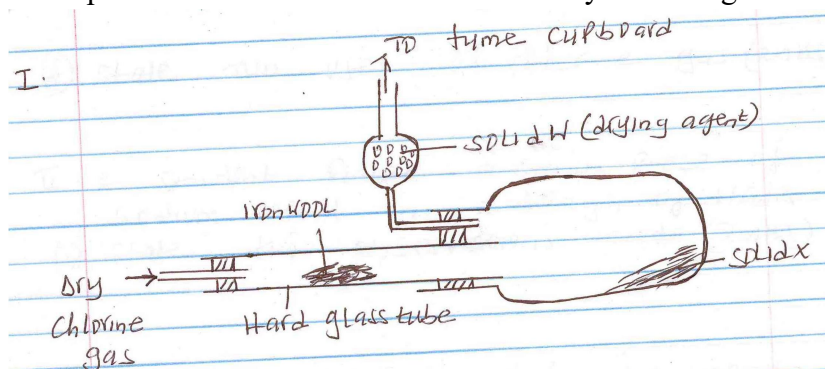 TO fume cupboard
I.
solid W (drying agent)
Iron wool
solid X
Dry
Chlorine
gas
Hard glass tube